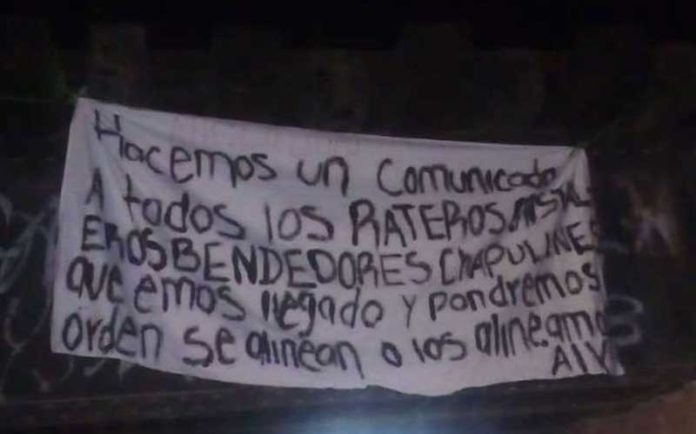 Hacemos un comunicado
A todos los RATEROS CRISTAL
EROS BENDEDORES CHAPULINES
que emos llegado y pondremos
orden se alinean o los alineamo